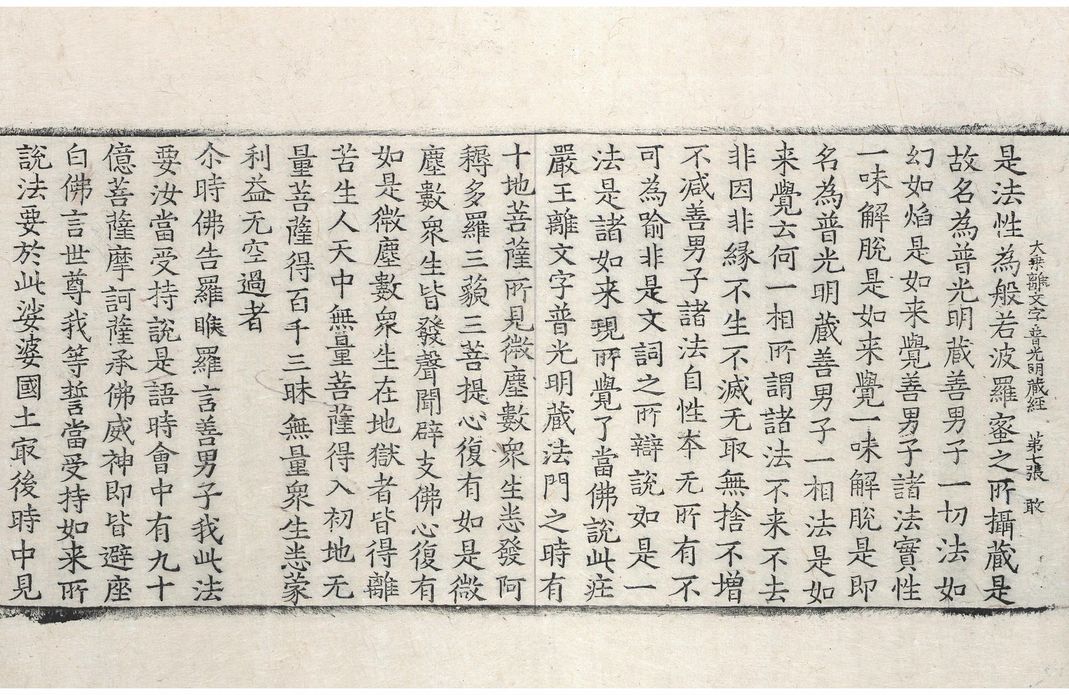 大乗離文字普光明蔵經 第七張 敢
是法性為般若波羅蜜之所攝蔵是
故名為普光明蔵善男子一切法如
幻如焰是如来覺善男子諸法實性
一味解脫是如来覺一味解脫是即
名為普光明蔵善男子一相法是如
来覺云何一相所謂諸法不来不去
非因非緣不生不滅无取無捨不增
不減善男子諸法自性本无所有不
可為喻非是文詞之所辯說如是一
法是諸如来現所覺了當佛說此㽵
嚴王離文字普光明蔵法門之時有
十地菩薩所見微塵數衆生悉發阿
耨多羅三藐三菩提心復有如是微
塵數衆生皆發聲聞辟支佛心復有
如是微塵數衆生在地獄者皆得離
苦生人天中無量菩薩得入初地无
量菩薩得百千三昧無量衆生悉蒙
利益无空過者
尒時佛告羅睺羅言善男子我此法
要汝當受持說是語時會中有九十
億菩薩摩訶薩承佛威神即皆避座
白佛言世尊我等誓當受持如来所
說法要於此娑婆國土㝡後時中見